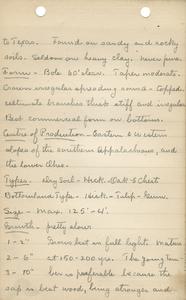 to Texas. Found on sandy and rocky
soils. Seldom on heavy clay. Never pure.
Form - Bole 60' clear. Taper moderate.
Crown irregular spreading round - topped.
ultimate branches that stiff and irregular
Best commercial form on bottoms.
Centre of Production - Eastern & western
slopes of the southern Appalachians, and
the lower Blue.
Types - Dry Soil - Hick. Oak & Chest
Bottomland Type - Hick. - Tulip - Gum.
Size - Max. 125' - 4'.
Growth - pretty slow.
1 - 2" Burns but in full light. Mature
2 - 6" at 150 - 200 yrs. The young tim-
3 - 10" ber is preferable because the
sap is best wood, being stronger and